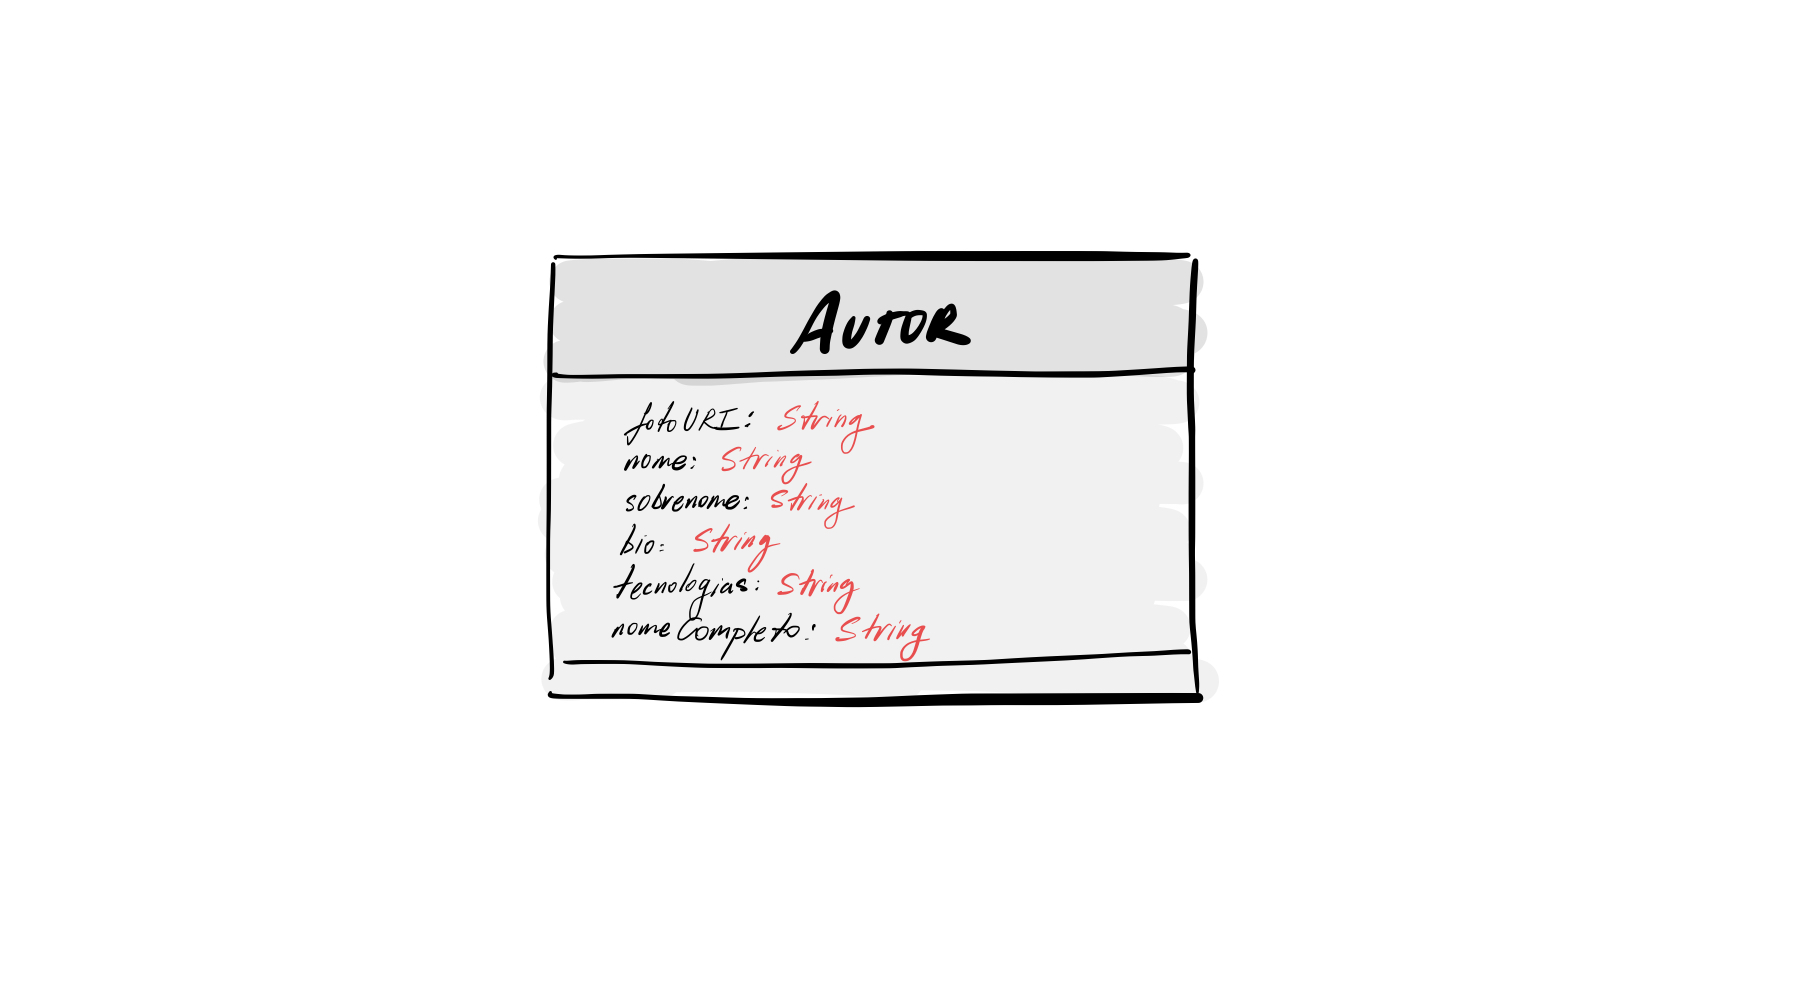 AUTOR
fotoURI: String
nome: String
sobrenome: String
bio: String
tecnologias: String
nomeCompleto: String